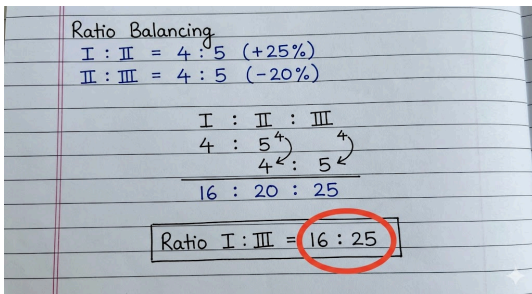 Ratio Balancing
I : II = 4 : 5 (+25%)
II : III = 4 : 5 (-20%)
I : II : III
4 : 5 4 4
4 : 5
16 : 20 : 25
Ratio I : III = 16 : 25